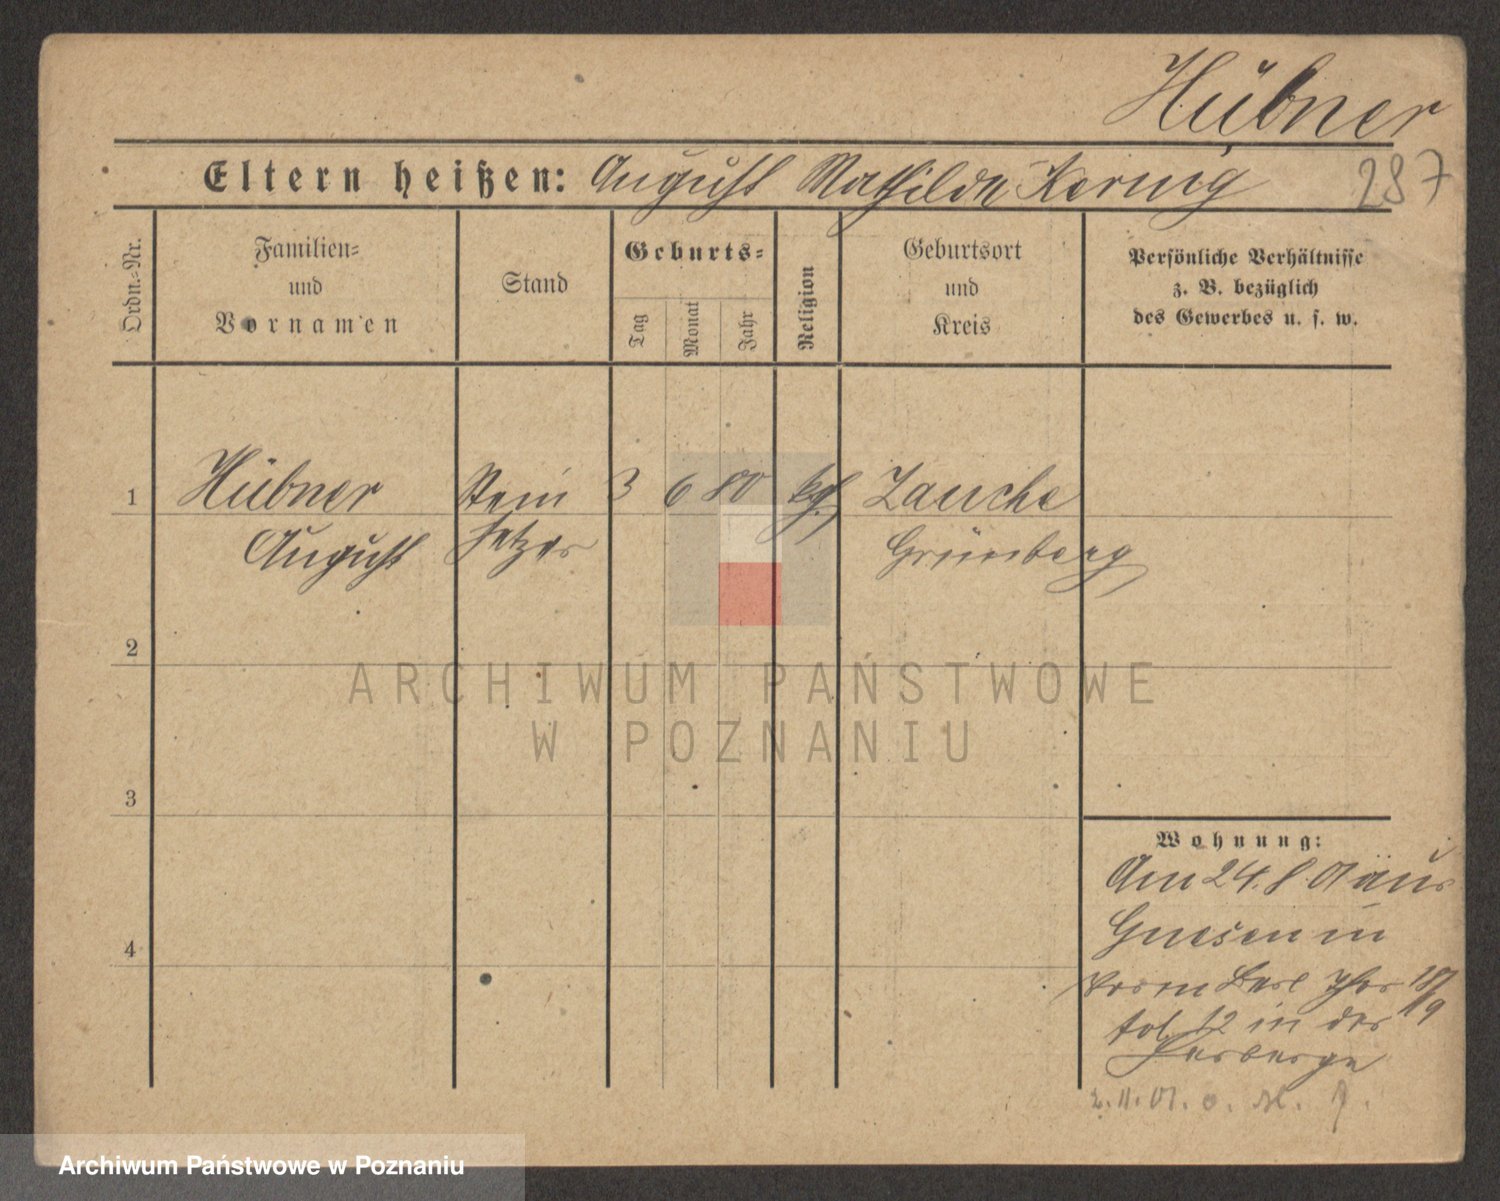 Hübner
Eltern heißen: August Mathilde Kernig
287
Ordn.-Nr.
Familien-
und
Vornamen
Stand
Geburts-
Tag
Monat
Jahr
Religion
Geburtsort
und
Kreis
Persönliche Verhältnisse
z. B. bezüglich
des Gewerbes u. s. w.
1
Hübner
August
Stein
setzer
3
6
80
Zauche
Grünberg
2
3
4
Wohnung:
Am 24.8.01 aus
Gnesen in
12 in der
Herberge
2.11.01. o.
ARCHIWUM PAŃSTWOWE
W POZNANIU
Archiwum Państwowe w Poznaniu